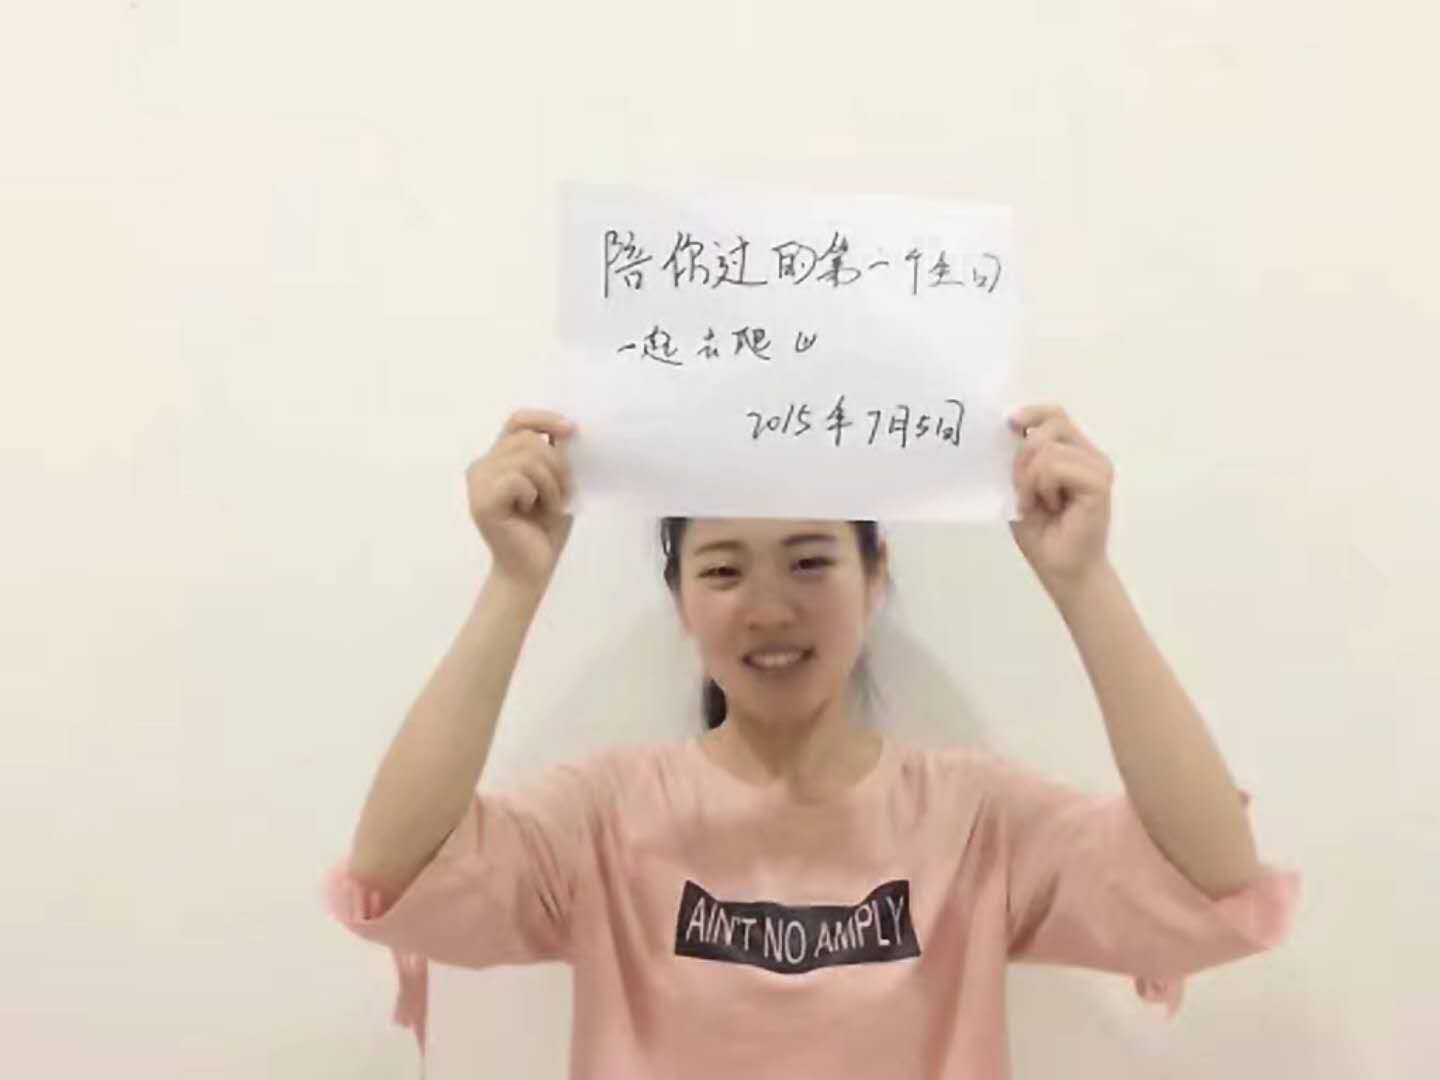 陪你过的第一个生日
一起去爬山
2015年7月5日
AIN'T NO AMPLY